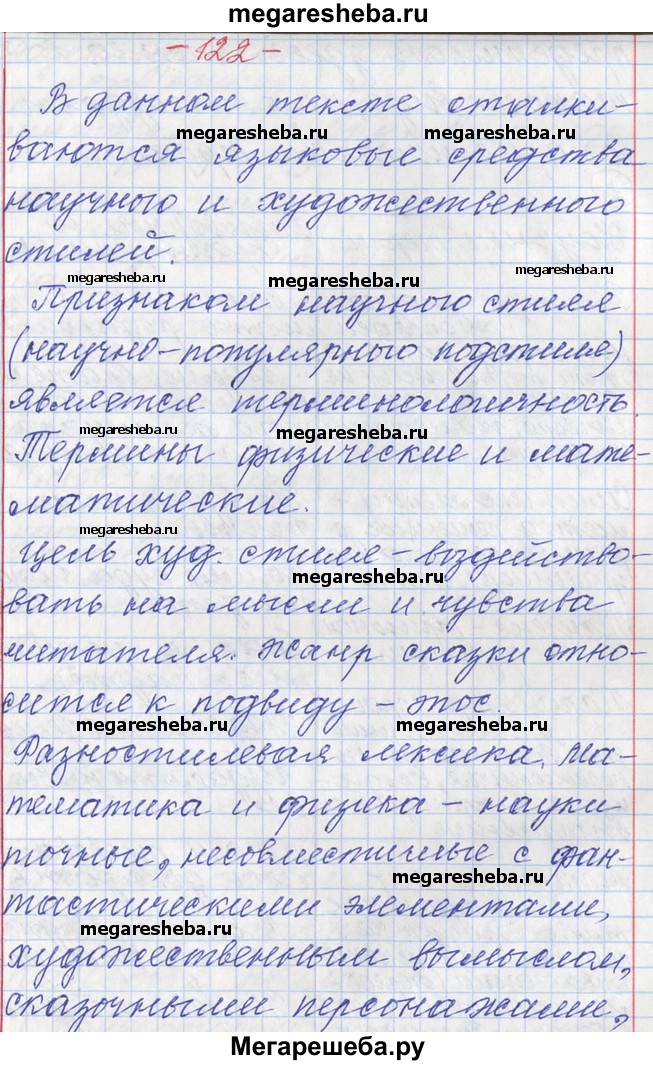 megaresheba.ru
- 122 -
В данном тексте сталки-
megaresheba.ru megaresheba.ru
ваются языковые средства
научного и художественного
стилей.
megaresheba.ru megaresheba.ru megaresheba.ru
Признаком научного стиля
(научно-популярного подстиля)
является терминологичность.
megaresheba.ru
Термины физические и мате-
матические.
megaresheba.ru
Цель худ. стиля - воздейство-
megaresheba.ru
вать на мысли и чувства
читателя. Жанр сказки отно-
сится к подвиду - эпос.
megaresheba.ru megaresheba.ru
Разностилевая лексика. Ма-
тематика и физика - науки
точные, несовместимые с фан-
megaresheba.ru
тастическими элементами,
megaresheba.ru
художественным вымыслом,
сказочными персонажами,
Мегарешеба.ру